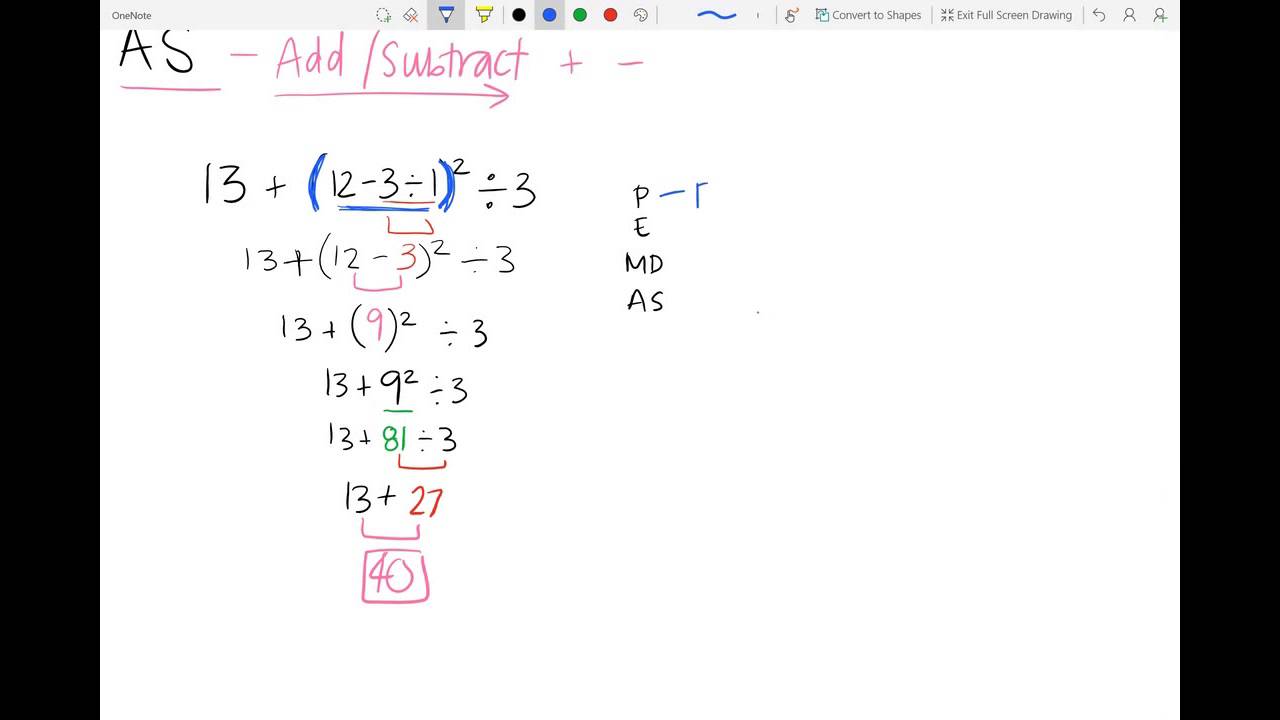 OneNote
Convert to Shapes
Exit Full Screen Drawing
AS - Add/Subtract + -
13 + (12-3÷1)² ÷3
13+(12-3)² ÷3
13+(9)² ÷3
13+9² ÷3
13+81÷3
13+27
40
P —
E
MD
AS